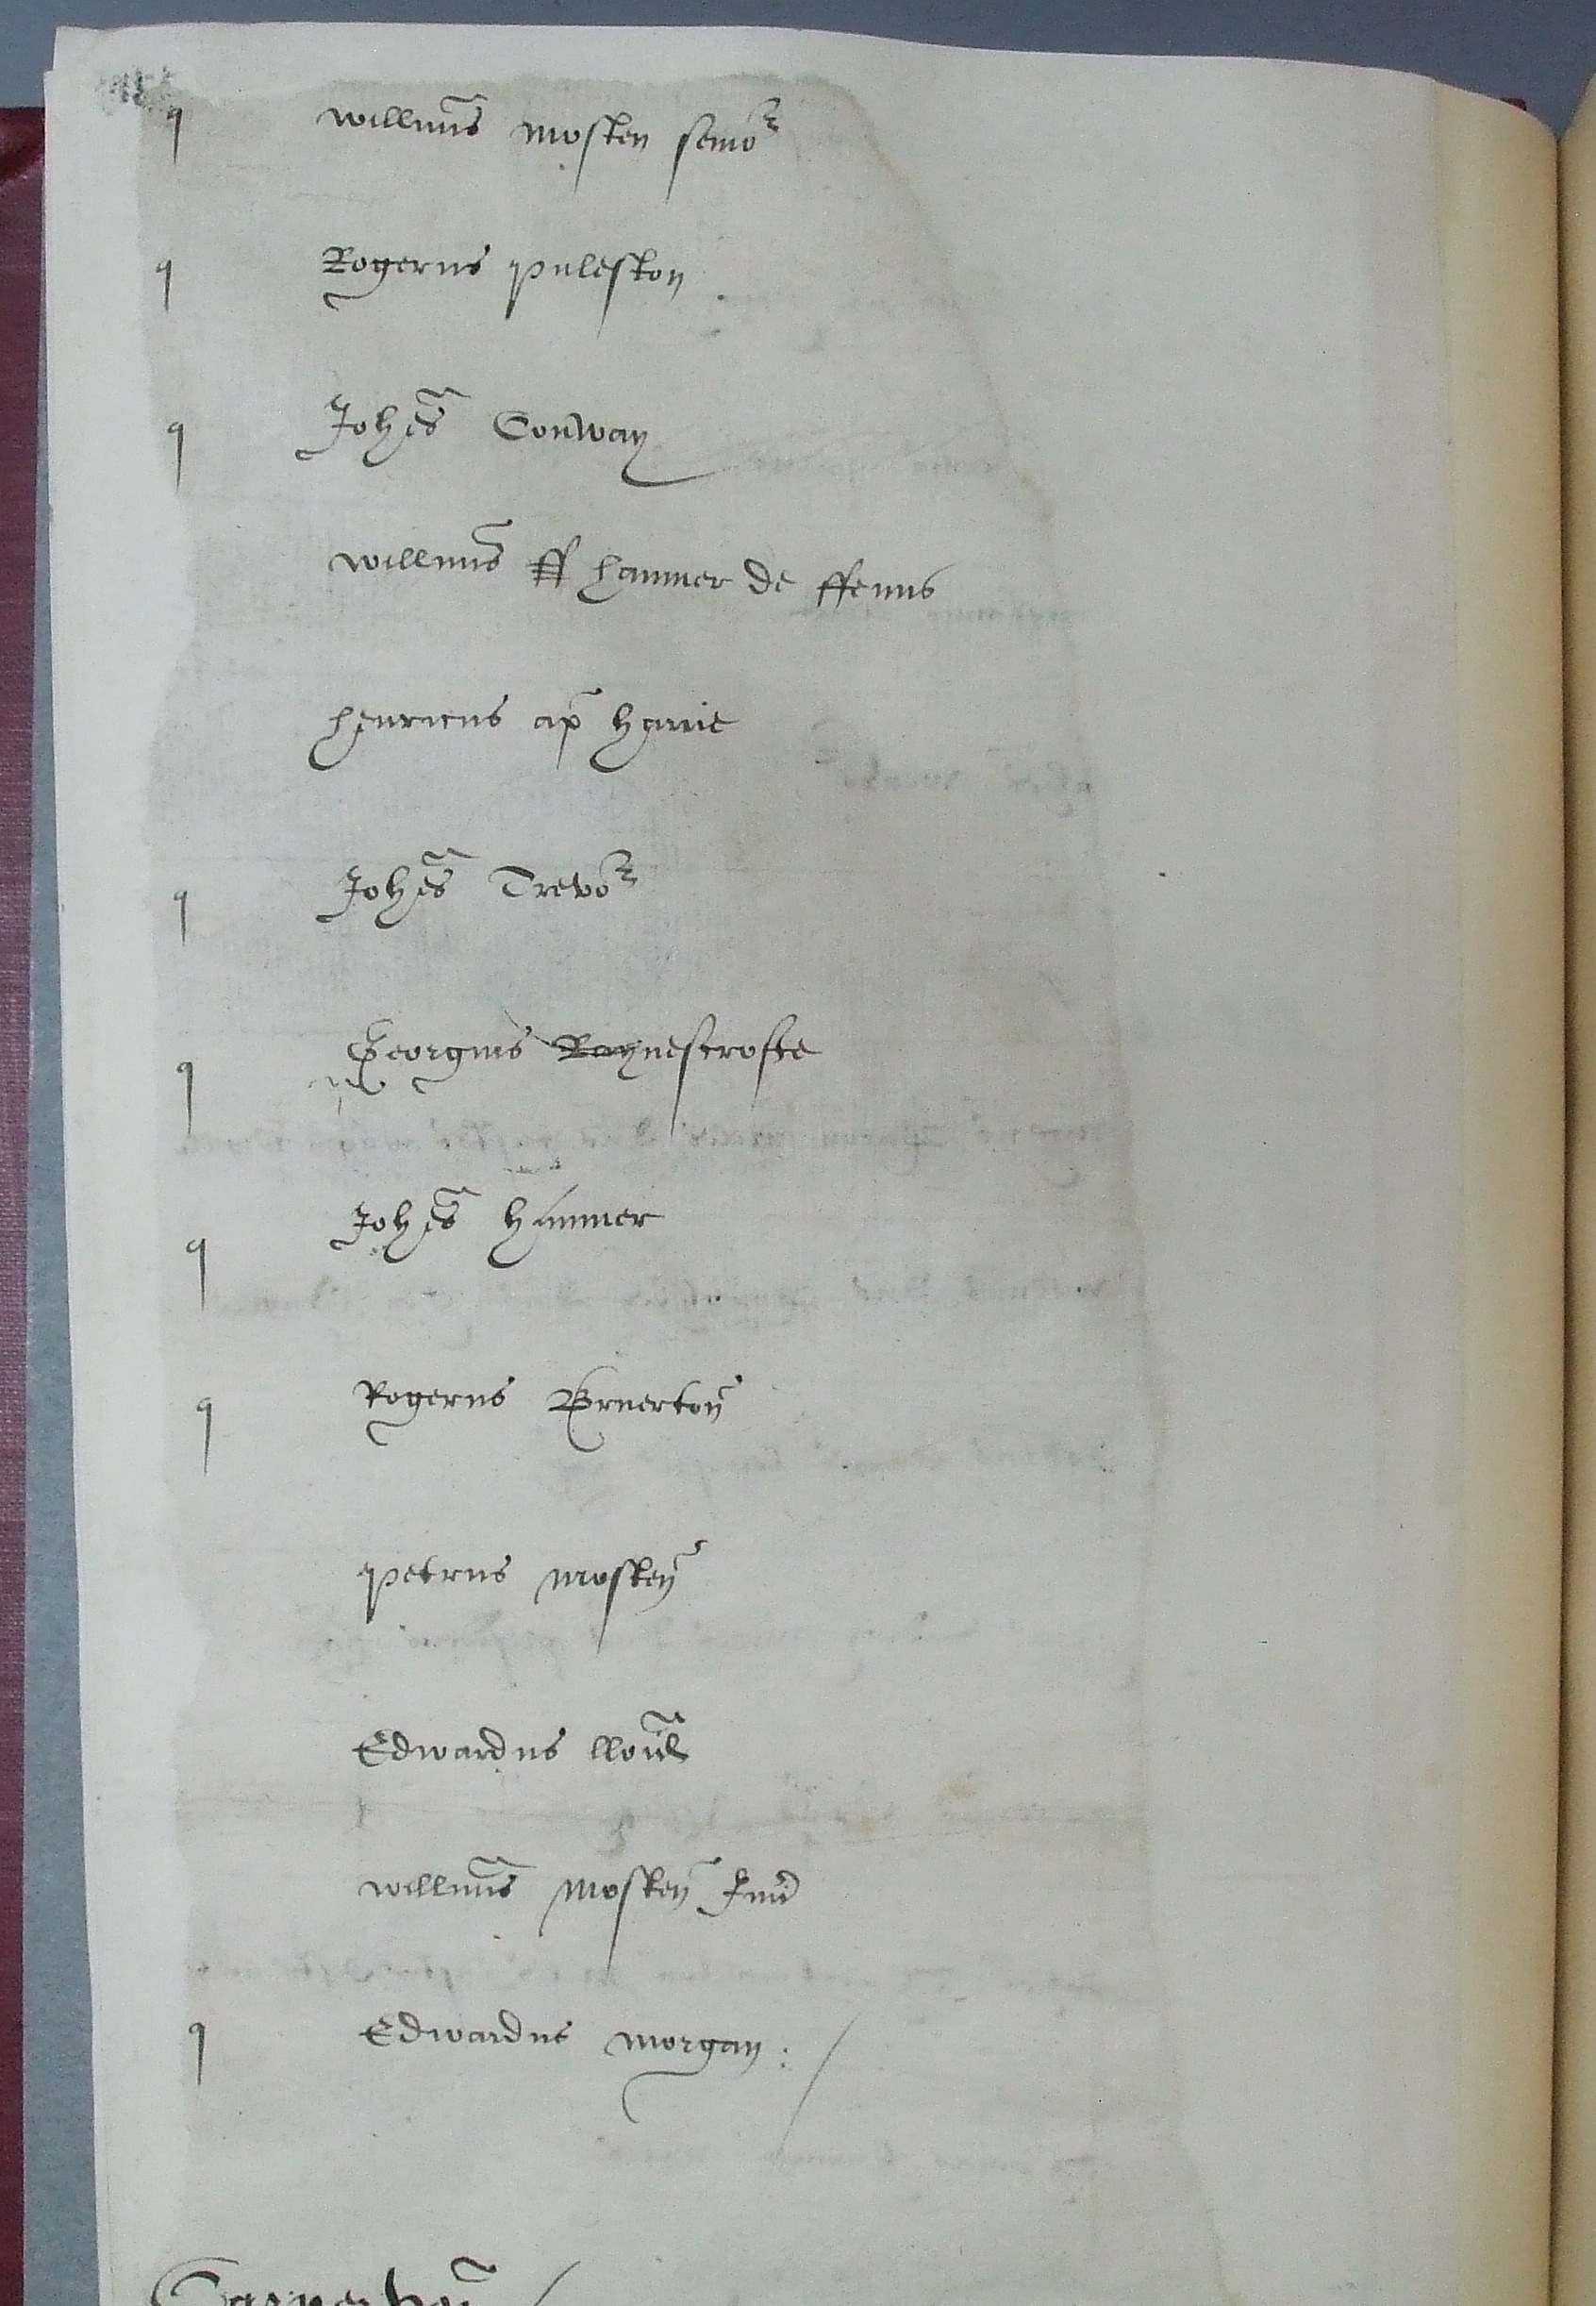 q willmus mosten senior
q Rogerus puleston
q Johes Conway
willmus ff hanmer de ffenns
henricus ap harrie
q Johes Trevor
q Georgius Raynescrofte
q Johes hanmer
q Rogerus Brnerton
petrus mosten
Edwardus lloid
willmus mosten Juni
q Edwardus morgan :/